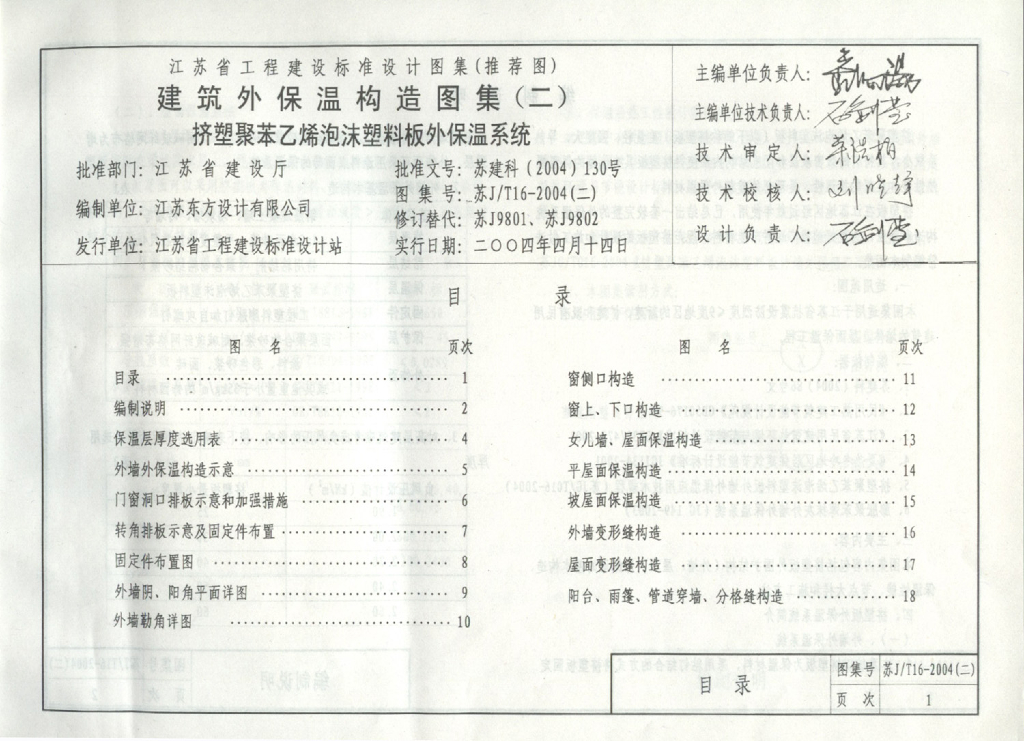 江苏省工程建设标准设计图集(推荐图)
建筑外保温构造图集(二)
挤塑聚苯乙烯泡沫塑料板外保温系统
批准部门：江苏省建设厅
批准文号：苏建科(2004)130号
编制单位：江苏东方设计有限公司
图集号：苏J/T16-2004(二)
修订替代：苏J9801、苏J9802
发行单位：江苏省工程建设标准设计站
实行日期：二〇〇四年四月十四日
主编单位负责人：
主编单位技术负责人：
技术审定人：
技术校核人：
设计负责人：
目 录
图 名 页次
目录 1
编制说明 2
保温层厚度选用表 4
外墙外保温构造示意 5
门窗洞口排板示意和加强措施 6
转角排板示意及固定件布置 7
固定件布置图 8
外墙阴、阳角平面详图 9
外墙勒角详图 10
图 名 页次
窗侧口构造 11
窗上、下口构造 12
女儿墙、屋面保温构造 13
平屋面保温构造 14
坡屋面保温构造 15
外墙变形缝构造 16
屋面变形缝构造 17
阳台、雨蓬、管道穿墙、分格缝构造 18
目 录
图集号 苏J/T16-2004(二)
页 次 1